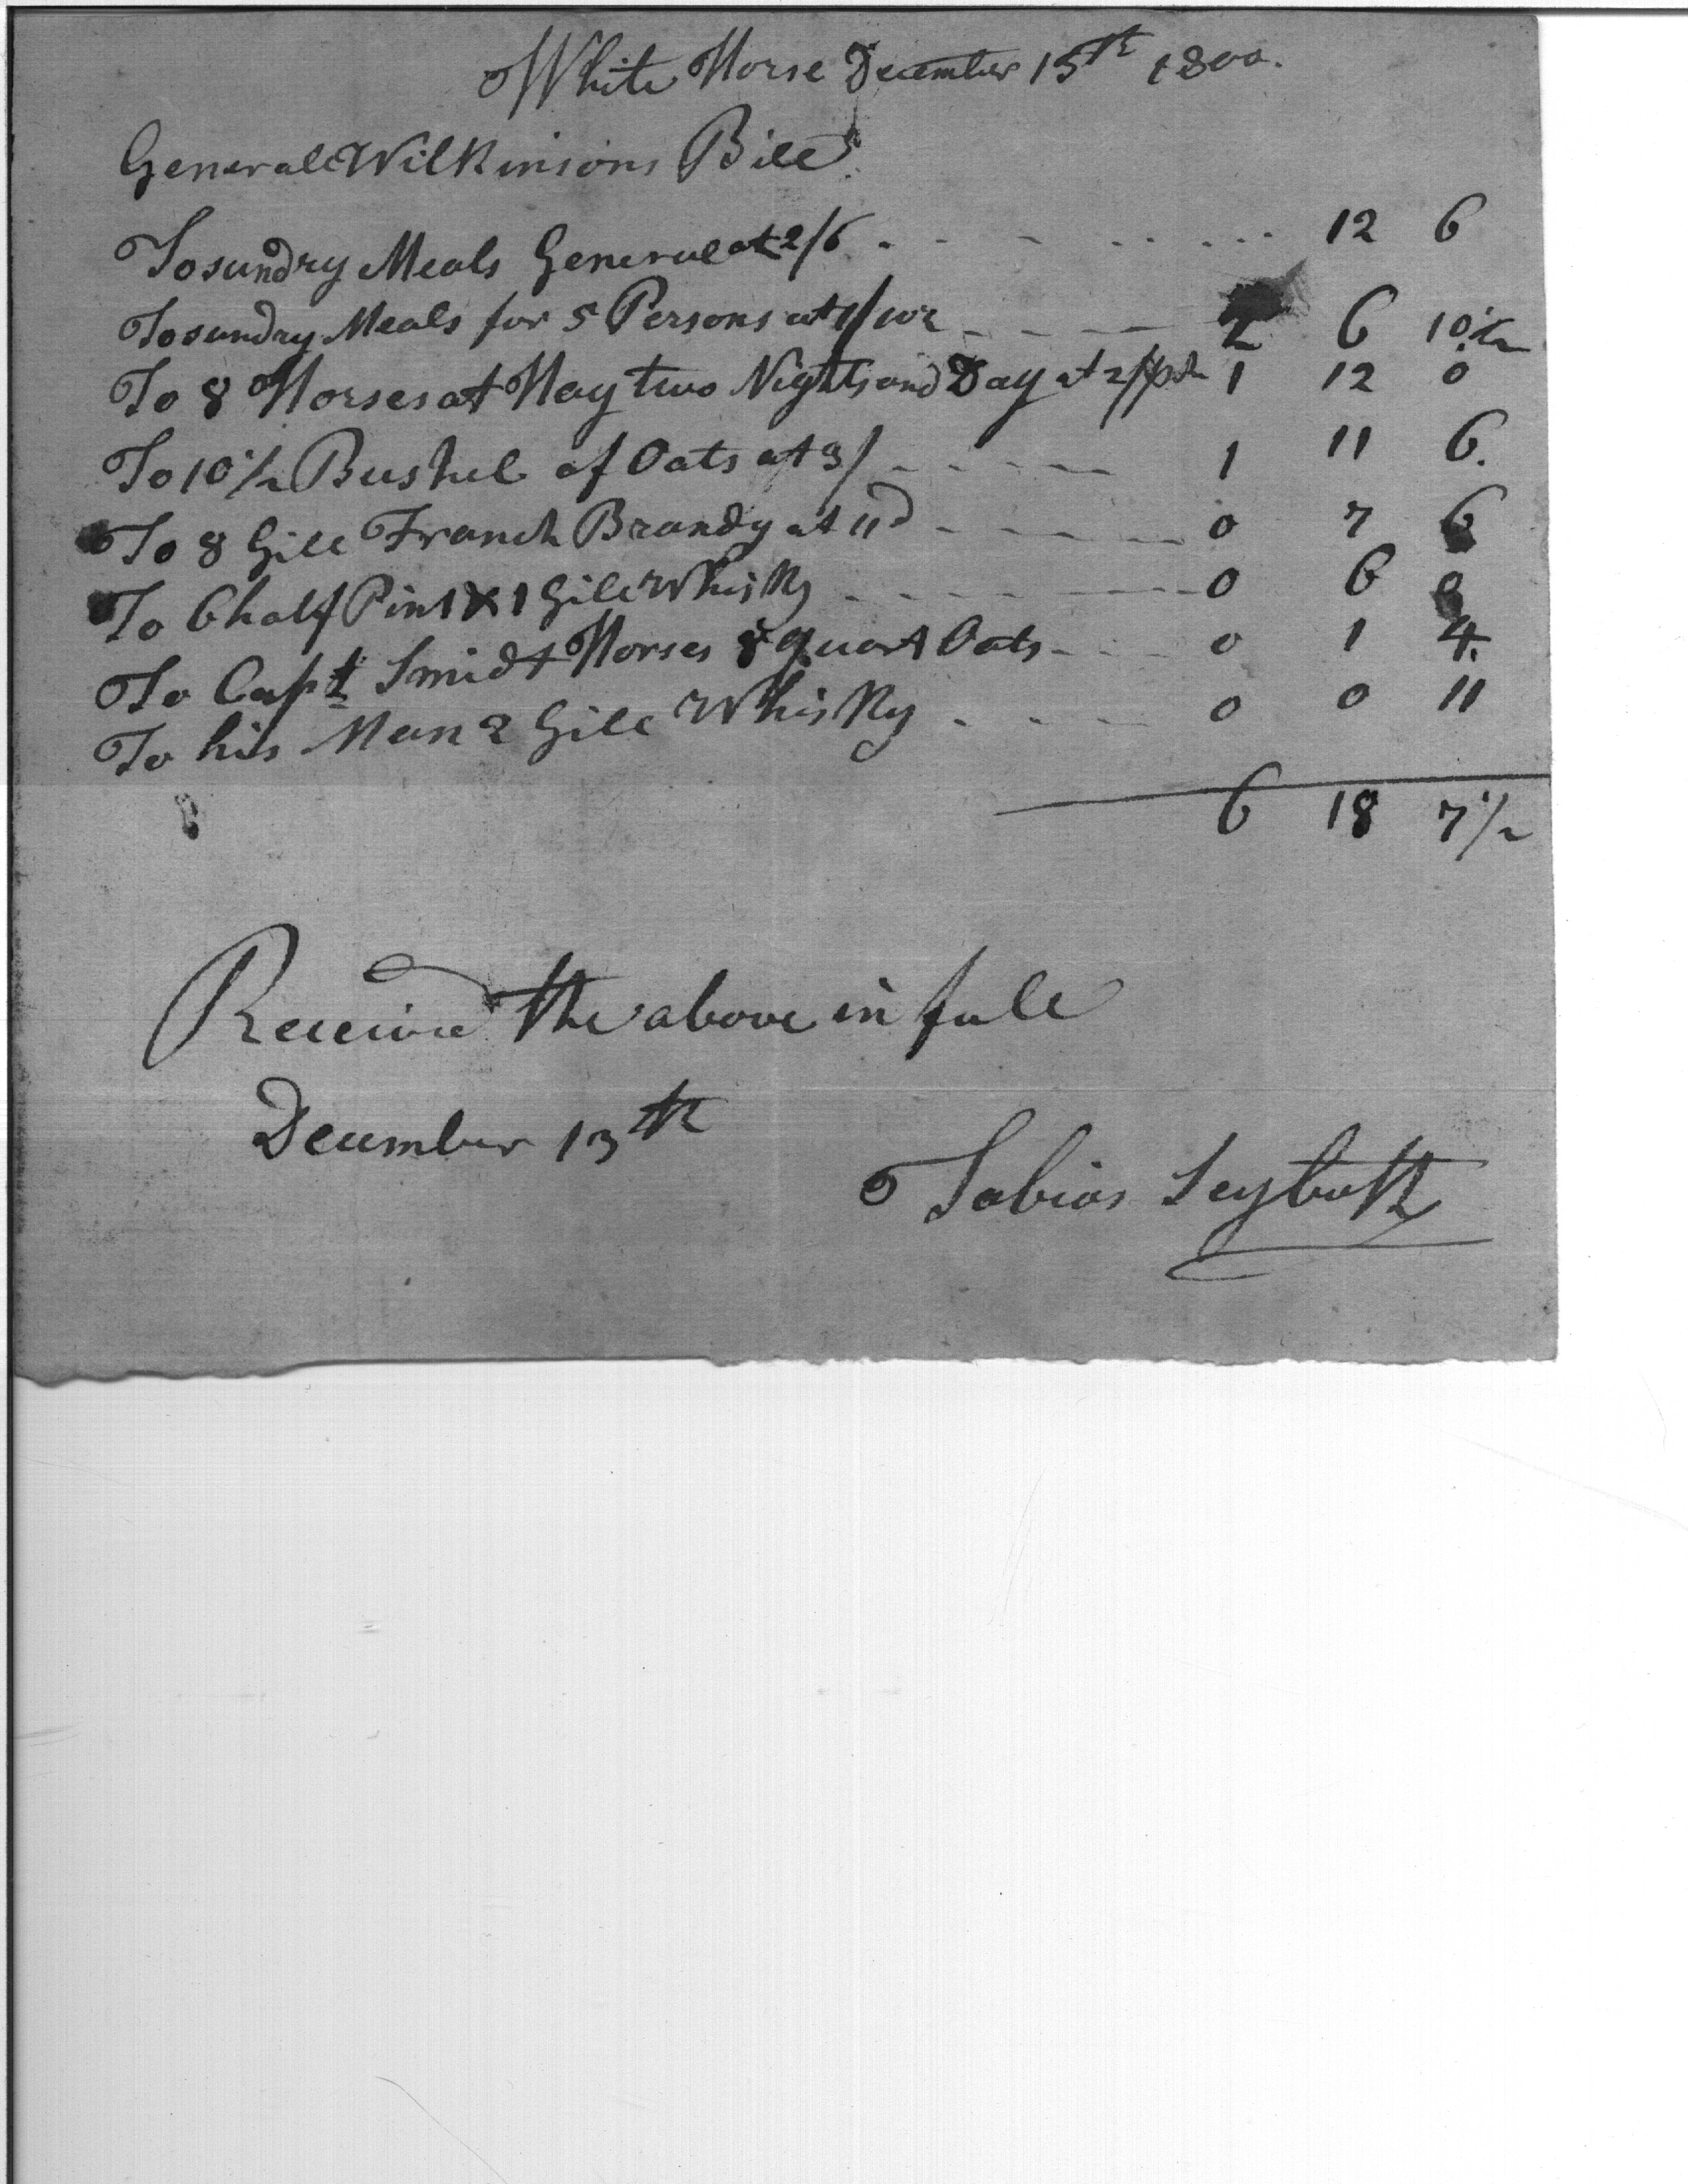 White Horse December 15th 1800.
Generall Wilkinsons Bill
To sundry Meals General at 2/6 12 6
To sundry Meals for 5 Persons at 1/10½ 2 6 10½
To 8 Horses at Hay two Nights and Day at 2/ 1 12 0
To 10½ Bushel of Oats at 3/ 1 11 6.
To 8 Gill Franch Brandy at 11d 0 7 6
To 6 half Pint & 1 Gill Whisky 0 6 0
To Capt Smidt Horses 8 quart Oats 0 1 4.
To his Man 2 Gill Whisky 0 0 11
6 18 7½
Received the above in full
December 15th
Tobias Seybott